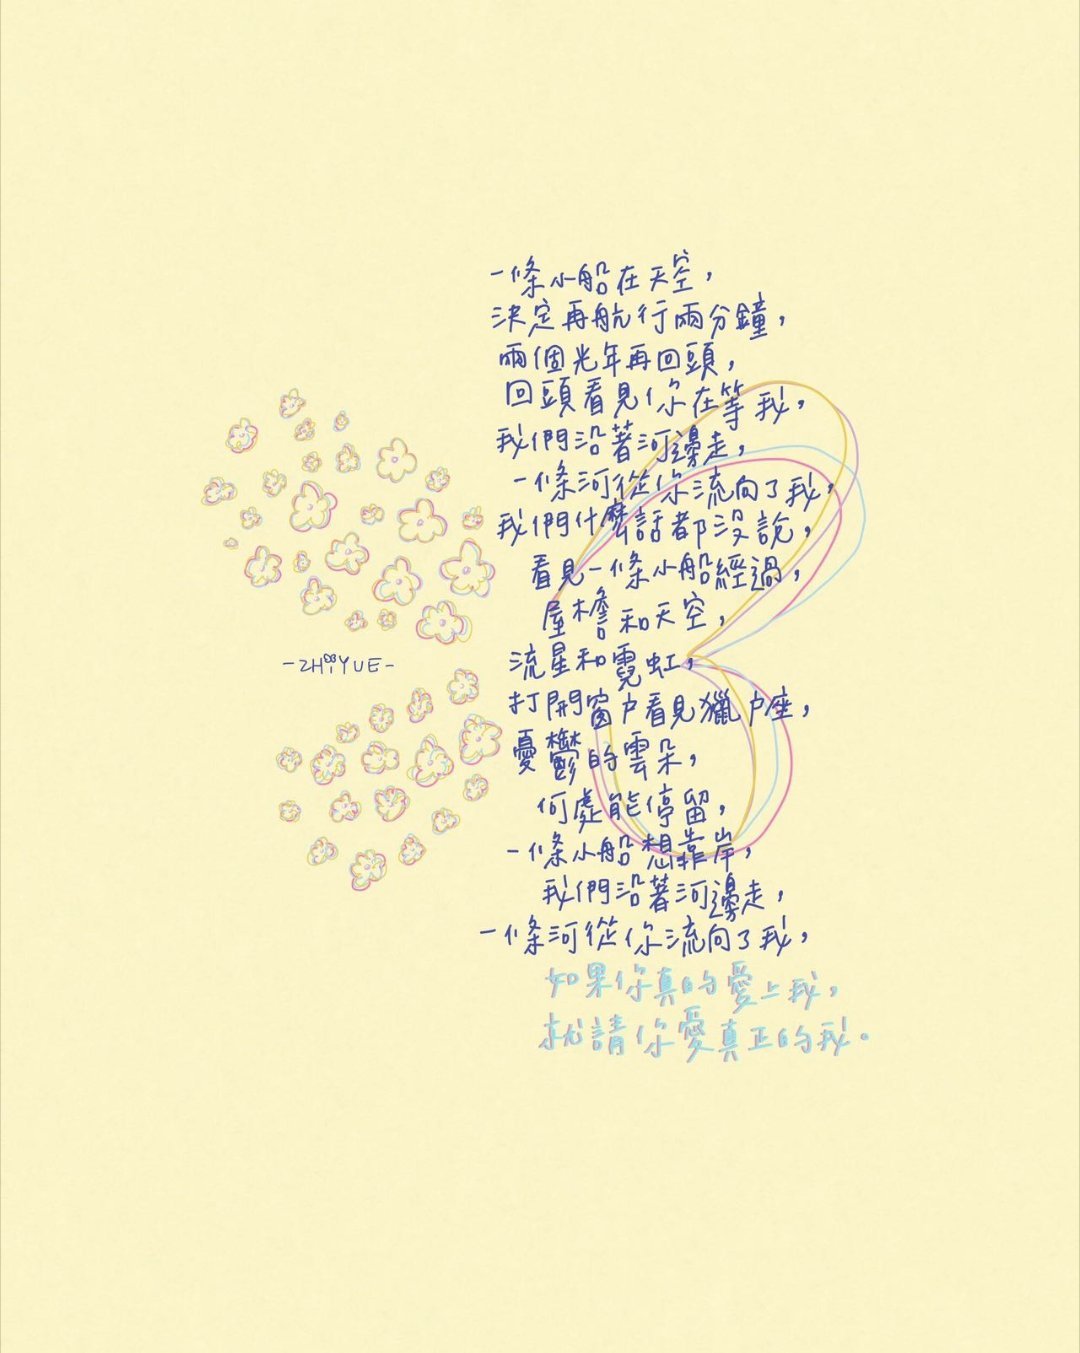 一條小船在天空，
決定再航行兩分鐘，
兩個光年再回頭，
回頭看見你在等我，
我們沿著河邊走，
一條河從你流向了我，
我們什麼話都沒說，
看見一條小船經過，
屋檐和天空，
流星和霓虹，
打開窗戶看見獵戶座，
憂鬱的雲朵，
何處能停留，
一條小船想靠岸，
我們沿著河邊走，
一條河從你流向了我，
如果你真的愛上我，
就請你愛真正的我。
-ZHIYUE-